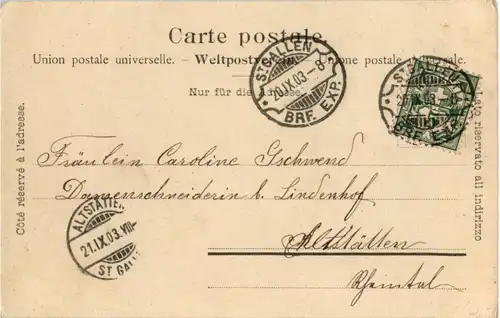 Carte postale.
Union postale universelle. – Weltpostverein. – Unione postale universale.
Nur für die Adresse.
ST. GALLEN
20.IX.03.–8
BRF. EXP.
ST. GALLEN
20.IX.03.–8
BRF. EXP.
Côté réservé à l'adresse.
Lato riservato all indirizzo
Fräulein Caroline Gschwend
Damenschneiderin b. Lindenhof
Altstätten
Rheintal
ALTSTÄTTEN
21.IX.03.VIII–
ST GALL